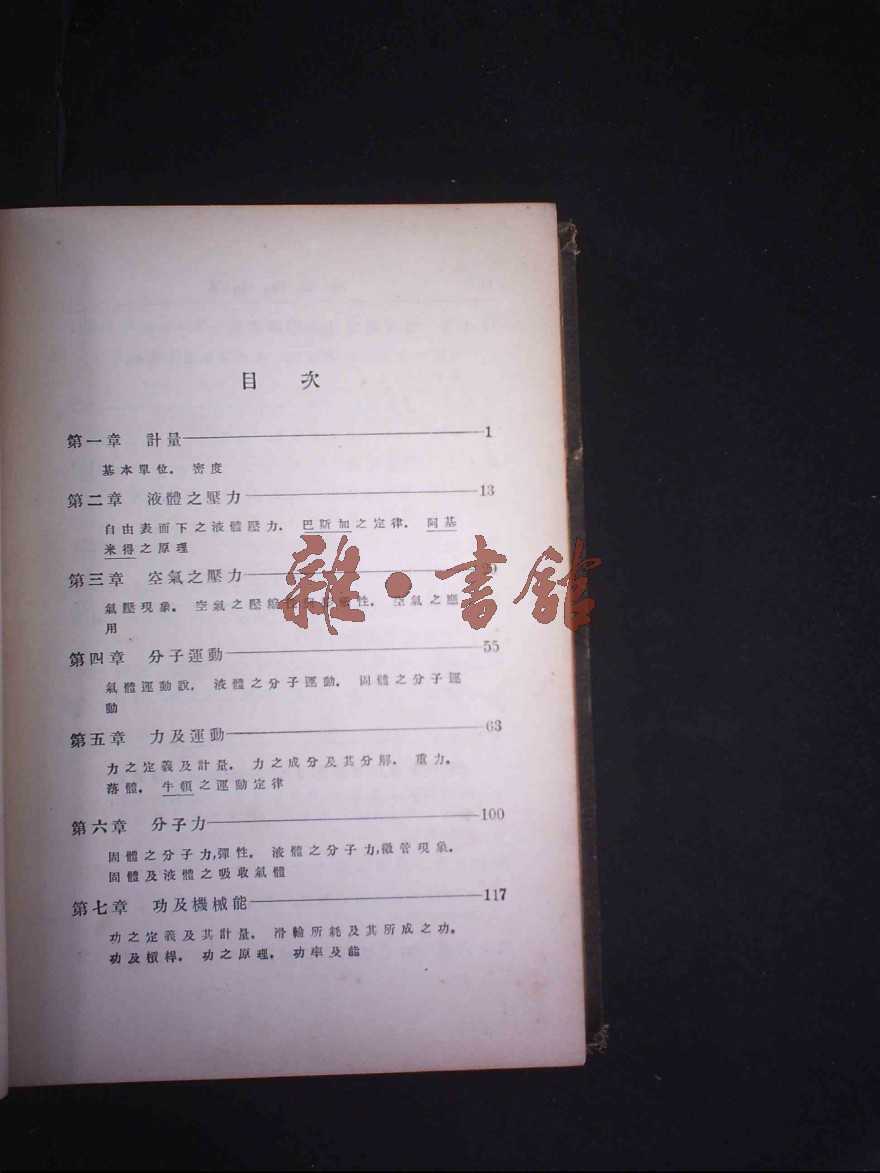 目 次
第一章 計量 1
基本單位． 密度
第二章 液體之壓力 13
自由表面下之液體壓力． 巴斯加之定律． 阿基
米得之原理
第三章 空氣之壓力
氣壓現象． 空氣之壓縮性 性． 空氣之應
用
第四章 分子運動 55
氣體運動說． 液體之分子運動． 固體之分子運
動
第五章 力及運動 63
力之定義及計量． 力之成分及其分解． 重力．
落體． 牛頓之運動定律
第六章 分子力 100
固體之分子力,彈性． 液體之分子力,微管現象．
固體及液體之吸收氣體
第七章 功及機械能 117
功之定義及其計量． 滑輪所耗及其所成之功．
功及槓桿． 功之原理． 功率及能
雜·書館